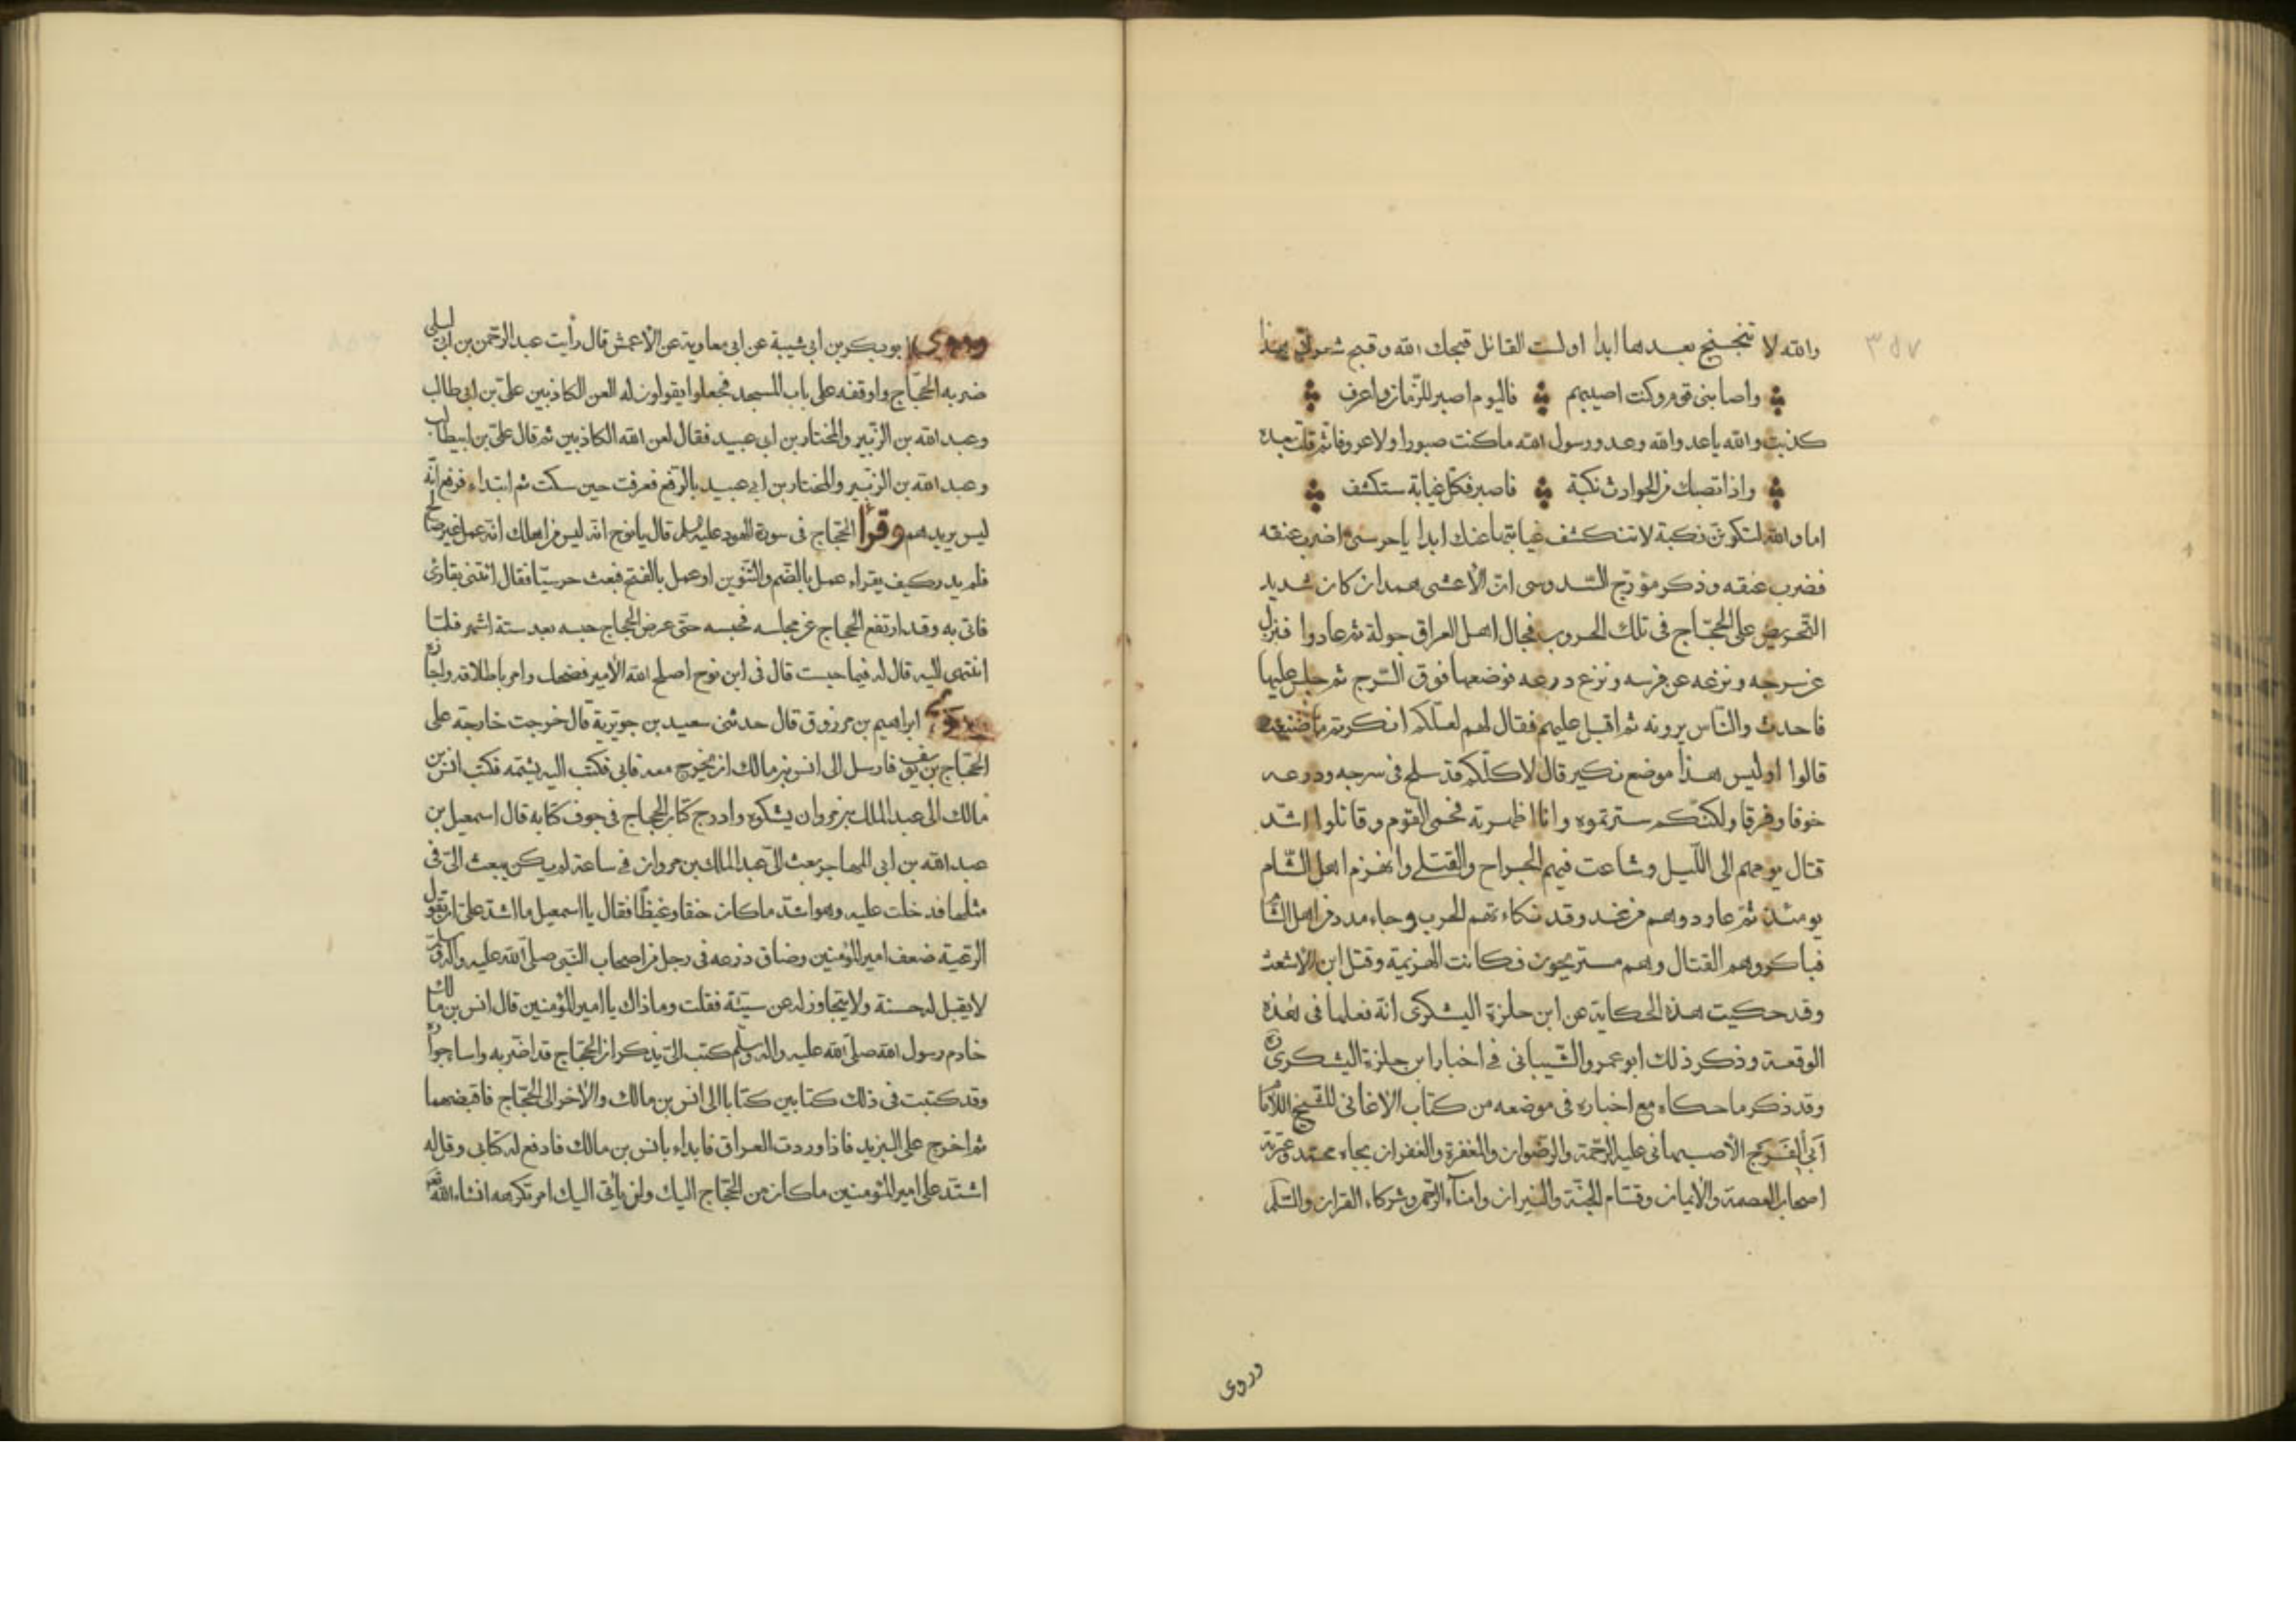 ٣٥٧
والله لا تبخبخ بعدها ابدا اولست القائل قبحك الله وقبح شمولتى بهذا
واصابنى قوم وكنت اصيبهم فاليوم اصبر للزمان واعرف
كذبت والله يا عدو الله وعدو رسول الله ما كنت صبورا ولا عروفا ثم قلت بعده
واذا تصبك من الحوادث نكبة فاصبر فكل غيابة ستكشف
اما والله لتكونن نكبة لا تنكشف غيابتها عنك ابدا يا حرسى اضرب عنقه
فضرب عنقه وذكر مؤرج السدوسى ان الأعشى همدان كان شديد
التحريص على الحجاج فى تلك الحروب فجال اهل العراق جولة ثم عادوا فنزل
عن سرجه ونزعه عن فرسه ونزع درعه فوضعها فوق السرج ثم جلس عليها
فاحدث والناس يرونه ثم اقبل عليهم فقال لهم لعلكم انكرتم ما صنعت
قالوا اوليس هذا موضع نكير قال لا كلكم قد سلح فى سرجه ودرعه
خوفا وفرقا ولكنكم سترتموه وانا اظهرته فحمى القوم وقاتلوا اشد
قتال يومهم الى الليل وشاعت فيهم الجراح والقتلى وانهزم اهل الشام
يومئذ ثم عاودوهم من غد وقد نكاءتهم الحرب وجاء مدد من اهل الشام
فباكروهم القتال وهم مستريحون فكانت الهزيمة وقتل ابن الاشعث
وقد حكيت هذه الحكاية عن ابن حلزة اليشكرى انه فعلها فى هذه
الوقعة وذكر ذلك ابو عمرو الشيبانى فى اخبار ابن حلزة اليشكرى
وقد ذكر ما حكاه مع اخباره فى موضعه من كتاب الاغانى للشيخ
أبى الفرج الأصبهانى عليه الرحمة والرضوان والمغفرة والغفران بجاه محمد وعترته
اصحاب العصمة والايمان وقسام الجنة والنيران وامناء الرحمن وشركاء القران والسلم
وروى
وروى ابو بكر بن ابى شيبة عن ابى معاوية عن الأعمش قال رأيت عبد الرحمن بن ابى ليلى
ضربه الحجاج واوقفه على باب المسجد فجعلوا يقولون له العن الكاذبين على بن ابى طالب
وعبد الله بن الزبير والمختار بن ابى عبيد فقال لعن الله الكاذبين ثم قال على بن ابيطالب
وعبد الله بن الزبير والمختار بن ابى عبيد بالرفع فعرفت حين سكت ثم ابتداء فرفع انه
ليس يريدهم وقرا الحجاج فى سورة الهود عليه السلم قال يا نوح انه ليس من اهلك انه عمل غير صالح
فلم يدر كيف يقراء عمل بالضم والتنوين او عمل بالفتح فبعث حرسيا فقال ائتنى بقارئ
فاتى به وقد ارتفع الحجاج عن مجلسه فحبسه حتى عرض الحجاج حبسه بعد ستة اشهر فلما
انتهى اليه قال له فيما حبست قال فى ابن نوح اصلح الله الأمير فضحك وامر باطلاقه واجازه
ابراهيم بن مرزوق قال حدثنى سعيد بن جويرية قال خرجت خارجة على
الحجاج بن يوسف فارسل الى انس بن مالك ان يخرج معه فابى فكتب اليه يشتمه فكتب انس بن
مالك الى عبد الملك بن مروان يشكوه وادرج كتاب الحجاج فى جوف كتابه قال اسمعيل بن
عبد الله بن ابى المهاجر بعث الى عبد الملك بن مروان فى ساعة لم يكن يبعث الى فى
مثلها فدخلت عليه وهو اشد ما كان حنقا وغيظا فقال يا اسمعيل ما اشد على ان تقول
الرعية ضعف امير المؤمنين وضاق ذرعه فى رجل من اصحاب النبى صلى الله عليه واله وسلم
لا يقبل له حسنة ولا يتجاوز له عن سيئة فقلت وما ذاك يا امير المؤمنين قال انس بن مالك
خادم رسول الله صلى الله عليه واله وسلم كتب الى يذكر ان الحجاج قد اضر به واساء جواره
وقد كتبت فى ذلك كتابين كتابا الى انس بن مالك والأخر الى الحجاج فاقبضهما
ثم اخرج على البريد فاذا وردت العراق فابداء بانس بن مالك فادفع له كتابى وقل له
اشتد على امير المؤمنين ما كان من الحجاج اليك ولن يأتى اليك امر تكرهه انشاء الله